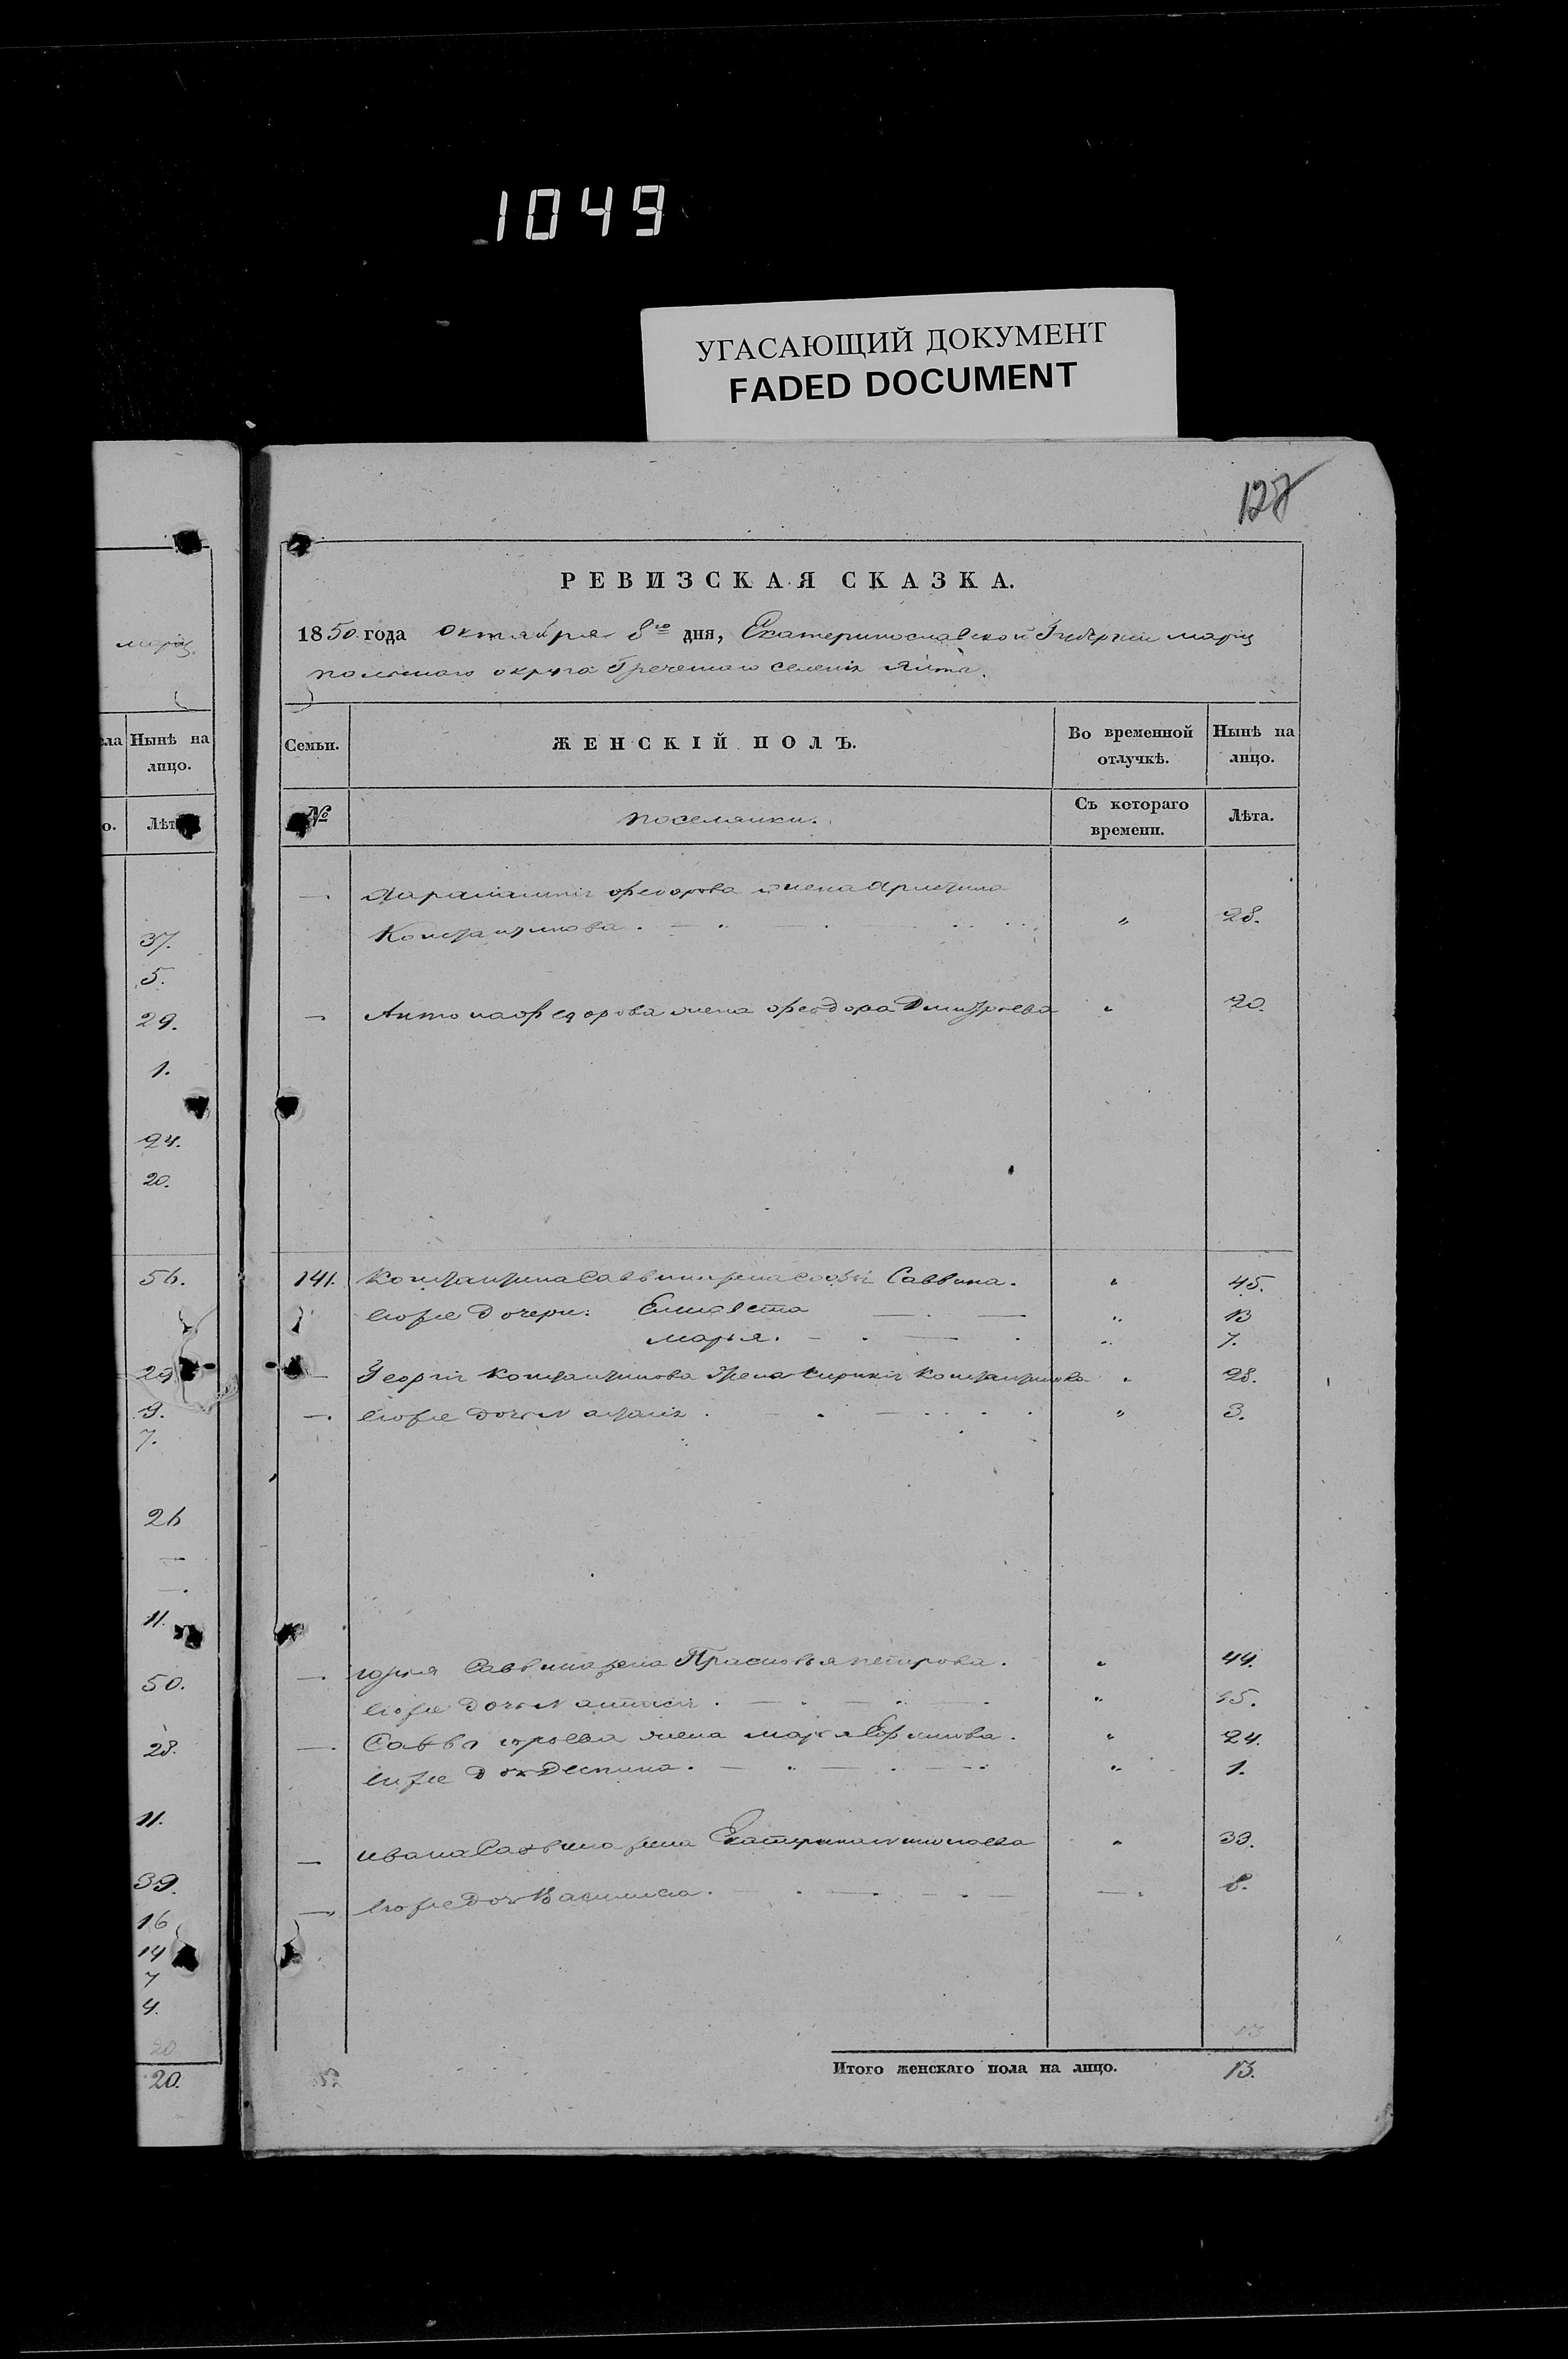 1049
УГАСАЮЩИЙ ДОКУМЕНТ
FADED DOCUMENT
128
РЕВИЗСКАЯ СКАЗКА.
1850 года Октября 8го дня, Екатеринославской Губерніи Маріу
польскаго округа Греческаго селенія Ялты.
Семьи.
ЖЕНСКІЙ ПОЛЪ.
Во временной отлучкѣ.
Нынѣ на лицо.
№
поселянки.
Съ котораго времени.
Лѣта.
—. Харалампія Федорова жена
Константинова. " 28.
— Антона Федорова жена Феодора Дмитріева " 20.
141. Константина Саввина жена Софія Саввина. " 45.
Его же дочери: Елисавета " 13
Марья. " 7.
— Георгія Константинова жена Кирикія Константинова " 28.
—. Его же дочь Наталія. " 3.
—. Юрья Саввина жена Прасковья Петрова. " 44.
Его же дочь " 15.
—. Саввы Юрьева жена Марья " 24.
Его же дочь Деспина. " 1.
— Ивана Саввина жена Екатерина " 33.
— Его же дочь Василиса. —. 8.
13
Итого женскаго пола на лицо. 13.
маріу
ела
Нынѣ на лицо.
о.
Лѣт
37.
5.
29.
1.
24.
20.
56.
29.
9.
7.
26
—
—.
11.
50.
28.
11.
39.
16
14
7
4.
20
20.